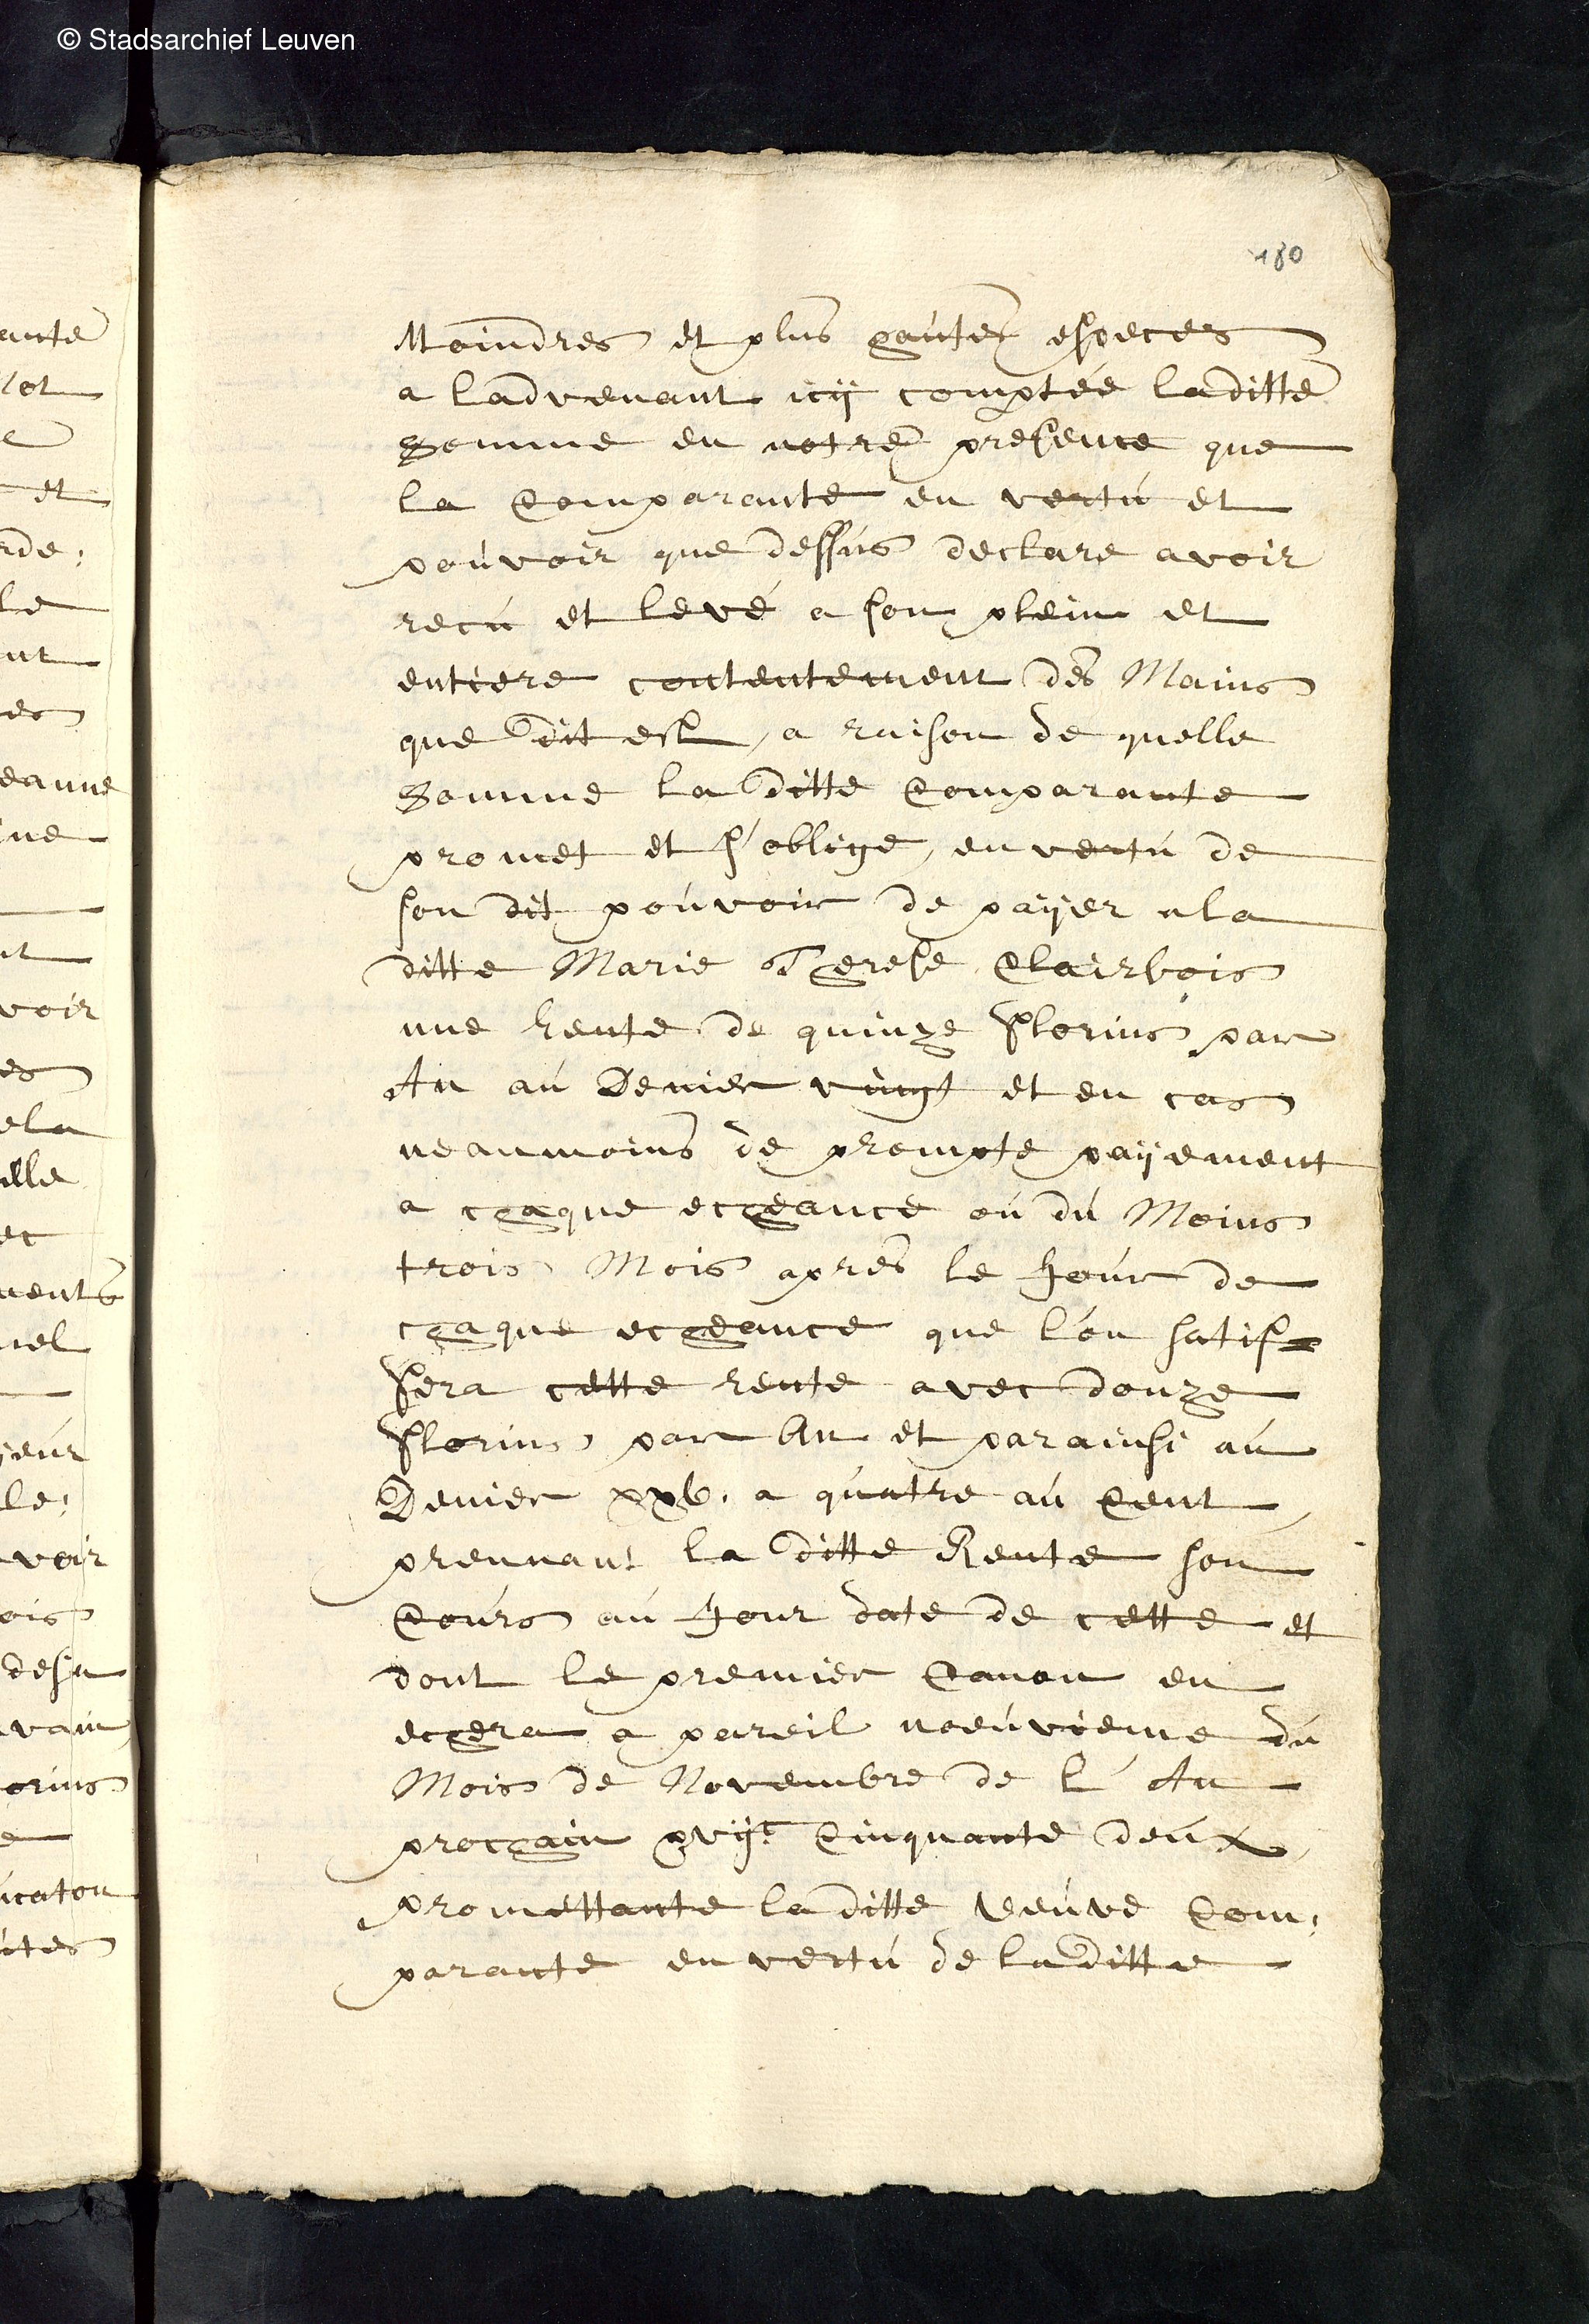 © Stadsarchief Leuven
180
Moindres et plus hautes especes
a ladvenant icy comptée laditte
somme en notre presence que
la Comparante en vertu et
pouvoir que dessus declare avoir
recu et levé a son plein et
entiere contentement des Mains
que dit est, a raison de quelle
somme la ditte Comparante
promet et s'oblige, en vertu de
son dit pouvoir de payer a la
ditte Marie Therese Clairbois
une rente de quinze florins par
An au Denier vingt et en cas
neanmoins de prompte payement
a chaque echeance ou du Moins
trois Mois apres le Jour de
chaque echeance que l'on satisf=
fera cette rente avec douze
florins par An et parainsi au
Denier xxv. a quatre au Cent,
prennant la ditte Rente son
Cours au Jour date de cette et
dont le premier Canon en
echera a pareil noeuvieme du
Mois de Novembre de l'An
prochain xvijc Cinquante deux,
promettante laditte veuve Com,
parante en vertu de laditte